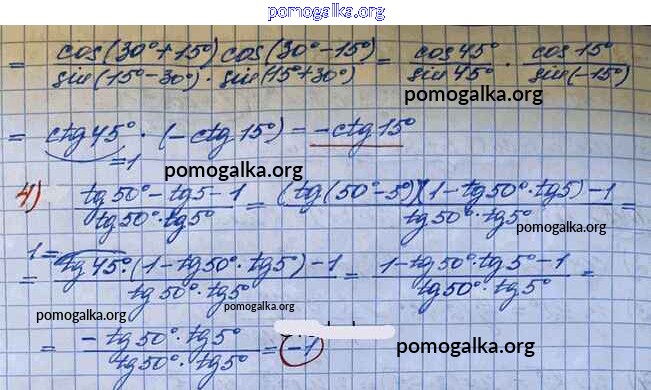 pomogalka.org
= cos(30°+15°) cos(30°-15°) / sin(15°-30°) · sin(15°+30°) = cos 45° / sin 45° · cos 15° / sin(-15°)
pomogalka.org
= ctg 45° · (-ctg 15°) = -ctg 15°
=1
pomogalka.org
4) tg 50° - tg 5 - 1 / tg 50° · tg 5° = (tg(50°-5°)(1 - tg 50° · tg 5) - 1 / tg 50° · tg 5° =
pomogalka.org
1=
= tg 45° · (1 - tg 50° · tg 5) - 1 / tg 50° · tg 5° = 1 - tg 50° · tg 5° - 1 / tg 50° · tg 5° =
pomogalka.org
pomogalka.org
= - tg 50° · tg 5° / tg 50° · tg 5° = -1
pomogalka.org